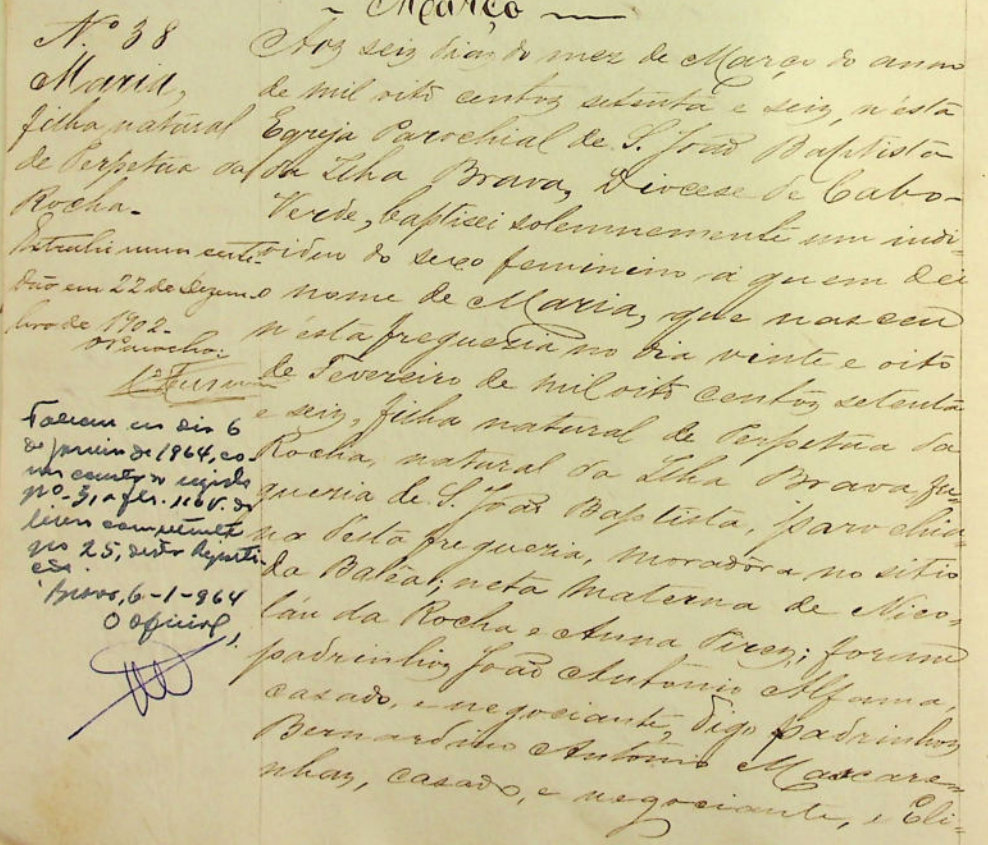 Março
Nº 38
Maria,
filha natural
de Perpetua da
Rocha.
Extrahi uma certi-
dão em 22 de Dezem-
bro de 1902.
O Parocho:
Faleceu no dia 6
de janeiro de 1964, co-
mo consta do registo
nº 5, a fls. 116 v. do
livro competente
nº 25, desta Reparti-
ção.
Brava, 6-1-964
O oficial,
Aoz seiz diaz do mez de Março do anno
de mil oito centoz setenta e seiz, n'esta
Egreja Parochial de S. João Baptista
da Ilha Brava, Diocese de Cabo-
Verde, baptisei solemnemente um indi-
viduo do sexo feminino a quem dei
o nome de Maria, que nasceu
n'esta freguezia no dia vinte e oito
de Fevereiro de mil oito centoz setenta
e seiz, filha natural de Perpetua da
Rocha, natural da Ilha Brava, fre-
guezia de S. João Baptista, parochia-
na desta freguezia, moradora no sitio
da Balêa; neta materna de Nico-
láu da Rocha e Anna Pirez; foram
padrinhoz João António Alfama,
cazado, e negociante, digo padrinhoz
Bernardino António Mascare-
nhaz, cazado, e negociante, e Eli-